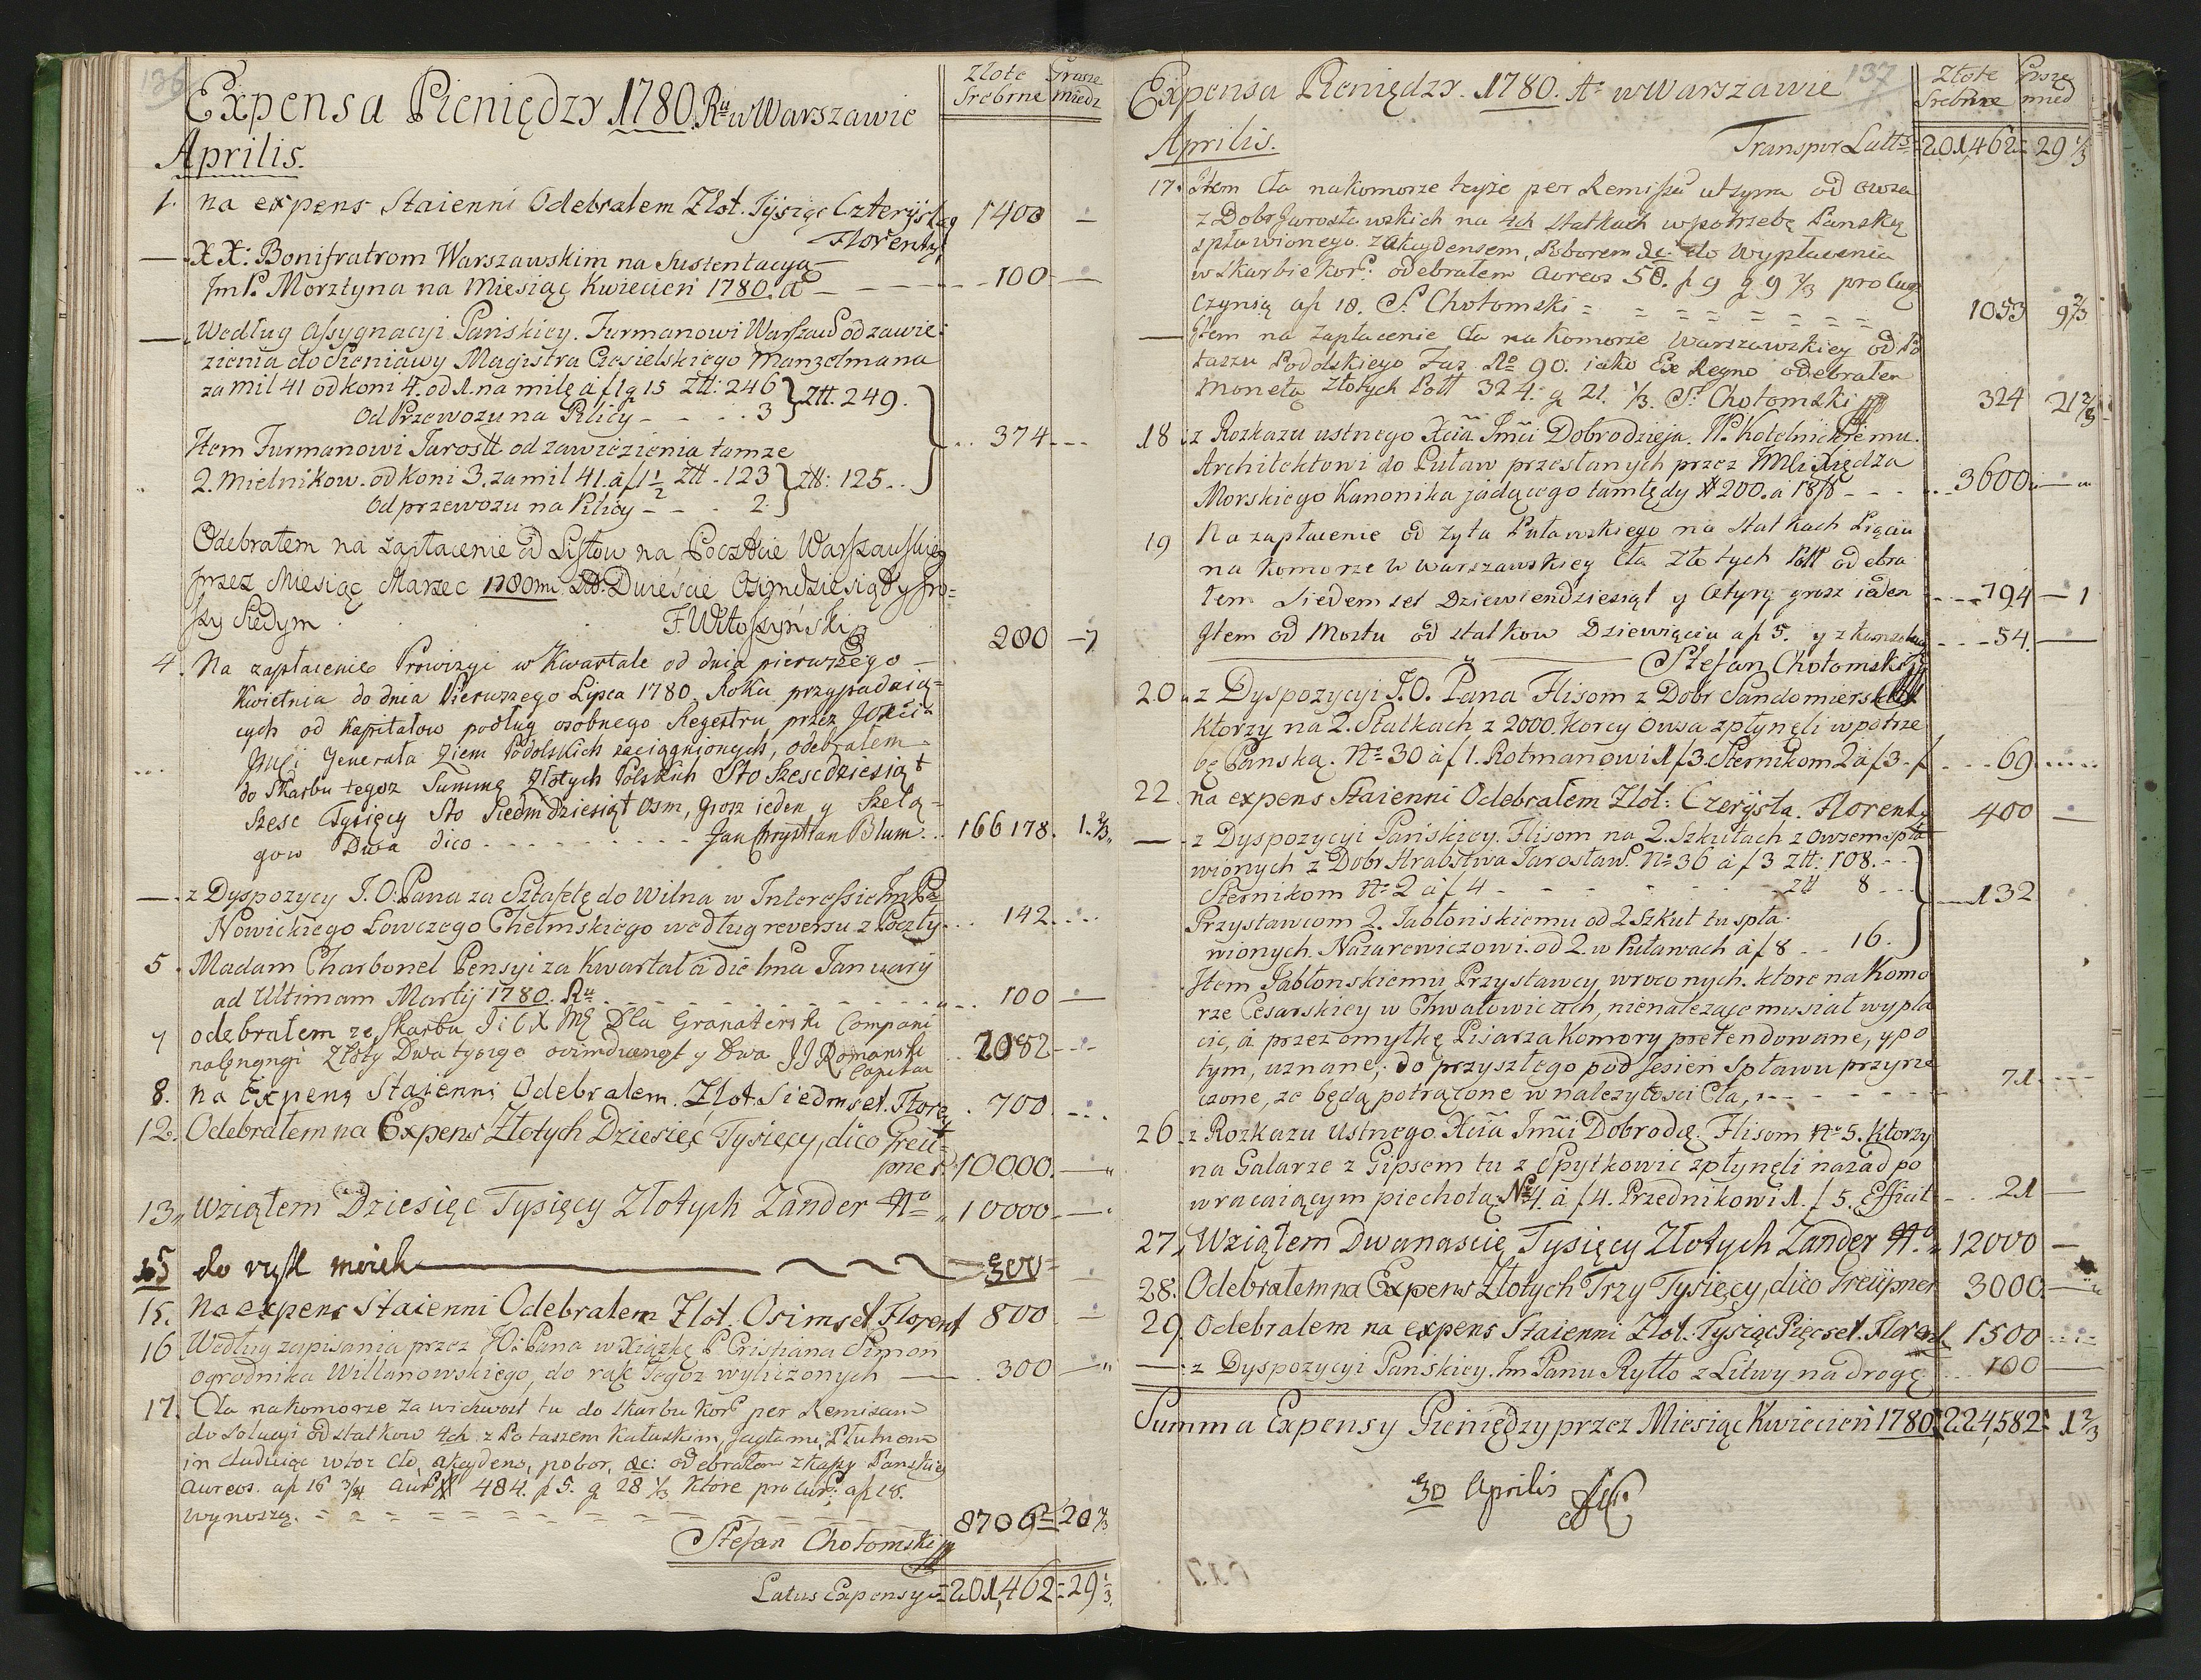 136
Expensa Pieniędzy 1780. Ru w Warszawie
Złote Grosze
Srebrne miedz
Aprilis.
1. na expens Staienni Odebralem Zlot. Tysiąc Czterysta 1400 —
Florenty
— XX: Bonifratrom Warszawskim na Sustentacyą
Jm P. Morztyna na Miesiąc Kwiecień 1780. a — 100 —
— Według Assygnacyi Pańskiey. Furmanowi Warszaw od zawie-
zienia do Sieniawy Magistra Ciesielskiego Manzelmana
za mil 41 od koni 4. od 1. na milę a f 1 g 15 Ztt: 246 } Ztt. 249.
Od Przewozu na Pilicy - - - 3
Item Furmanowi Jarostt od zawiezienia tamze ... 374 ...
2. Mielnikow. od koni 3. za mil 41. a f 1 1/2 Ztt. 123 } Ztt: 125..
Od przewozu na Pilicy - - - 2.
Odebrałem na zapłacenie od Listow na Poczcie Warszawskiey
przez Miesiąc Marzec 1780mi Ztt. Dwieście Ośmdziesiąt y gro-
szy Siedym F. Witoszyński 280 — 7
4. Na zapłacenie Prowizyi w Kwartale od dnia pierwszego
Kwietnia do dnia Pierwszego Lipca 1780. Roku przypadaią-
cych od Kapitałow podług osobnego Regestru przez JOXcia
Jmci Generała Ziem Podolskich zaciągnionych, odebrałem
do Skarbu tegoz Summę Złotych Polskich Sto Szescdziesiąt
Szesc Tysięcy Sto Siedmdziesiąt Osm, Grosz ieden y Szelą-
gow Dwa dico - - - Jan Chrystian Blum.. 166178. 1. 2/3
— z Dyspozycy J.O. Pana za Sztafetę do Wilna w Interessie Jm Pa
Nowickiego Łowczego Chełmskiego według reversu z Poczty... 142...
5. Madam Charbonel Pensyi za Kwartał a die 1ma Januarij
ad Ultimam Martij 1780. Ru - - - 100 —
7 odebralem ze Skarbu Dla Granaterski Compani
Złoty Dwa tysiąc y Dwa JJ Romanski .. 2082 ...
Capitan
8. na Expens Staienni Odebralem. Zlot. Siedmset. Floren . 700 ...
12. Odebrałem na Expens Złotych Dziesięć Tysięcy, dico Greu-
pner. 10000. —
13„ Wziąłem Dziesięć Tysięcy Złotych Zander 10000 —
15 do rąk moich — 300 =
15. Na expens Staienni Odebralem Zlot. Osimset Florent 800 —
16 Według zapisania przez JO: Pana w Xiążkę P Cristiana Simon
ogrodnika Willanowskiego, do rąk Tegoz wyliczonych — 300 —
17. Cła na komorze Zawichwost tu do Skarbu Kor per Remisam
do Solucyi od statkow 4ch z Potaszem Kałuskim, Jagłami, Płutnem
in cluduiąc wtoz cło, akcydens, pobor, &c: odebrałem z kassy Panskiey
Aureos. af 16 3/4 484. f 5. g 28 1/3 Ktore pro Cur: af 18.
wynoszą. = = = = 8706 = 20 2/3
Stefan Chotomski
Latus Expensy = 201,462 = 29 1/3.
137
Expensa Pieniędzy. 1780. Ao w Warszawie
Złote Grosze
Srebrne mied
Aprilis. Transpor Latts 201,462 = 29 1/3
17. Item Cła na komorze teyże per Remissa utsupra od owsa
z Dobr Jarosławskich na 4ch statkach w potrzebę Panską
spławionego. z Akcydensem, Poborem &c: do Wypłacenia
w Skarbie Kor: odebrałem Aureos 58. f 9 g 9 2/3 pro Cur
czynią af 18. S. Chotomski = = = = 1053 9 2/3
— Item na zapłacenie Cła na Komorze Warszawskiey od Po
taszu Podolskiego Faz No 90. iako Ex Regno odebrałem
Monetą Złotych Poll 324. g 21. 1/3. S. Chotomski 324 21 2/3
18. z Rozkazu ustnego Xcia Jmci Dobrodzieja. Architektowi do Puław przesłanych przez JMci Xiędza
Morskiego Kanonika jadącego tamtędy # 200. a 18 f - - - 3600. —
19 Na zapłacenie od Zyta Puławskiego na Statkach Pięciu
na komorze w Warszawskiey Cła Złotych Poll odebra
łem Siedem set Dziewiendziesiąt y Cztyry grosz ieden - - 794 — 1
Item od Mostu od statkow Dziewięciu af 5. y z - - 54. —
Stefan Chotomski
20. z Dyspozycyi J.O. Pana Flisom z Dobr Sandomierskich
ktorzy na 2. Statkach z 2000. Korcy Owsa zpłynęli w potrze
bę Panską. No 30 a f 1. Rotmanowi 1 f 3. Sternikom 2 a f 3. f ... 69 .....
22. na expens Staienni Odebralem Zlot: Czerysta. Florenty 400 —
— z Dyspozycyi Pańskiey. Flisom na 2. Szkutach z owsem spła
wionych z Dobr Hrabstwa Jarosław. No 36 a f 3 Ztt: 108. - -
Sternikom No 2 a f 4 - - - Ztt 8 - - } 132
Przystawcom 2. Jabłońskiemu od 2 Szkut tu spła-
wionych. Nazarewiczowi. od 2. w Puławach a f 8 - - 16.
Item Jabłonskiemu Przystawcy wroconych. ktore na Komo
rze Cesarskiey w Chwałowicach, nienależące musiał wypła
cic, a przez omyłkę Pisarza Komory pretendowane, y po
tym, uznane; do przyszłego pod Jesień Spławu przyrze
czone, ze będą potrącone w należytości Cła, - - - 71. ---
26. z Rozkazu Ustnego Xcia Jmci Dobrodz. Flisom No 5. ktorzy
na Galarze z Gipsem tu z Spytkowic zpłynęli nazad po
wracaiącym piechotą No 4. a f 4. Przednikowi 1. f 5. Efficit - . 21 —
27„ Wziąłem Dwanascie Tysięcy Złotych Zander 12000 —
28. Odebrałem na Expens Złotych Trzy Tysięcy, dico Greupner 3000. —
29. Odebralem na expens Staienni Zlot. Tysiąc Pięcset. Florent 1500 ...
— z Dyspozycyi Pańskiey. Jm Panu Rytło z Litwy na drogę ... 100 —
Summa Expensy Pieniędzy przez Miesiąc Kwiecień 1780 224,582 = 1 2/3
30 Aprilis